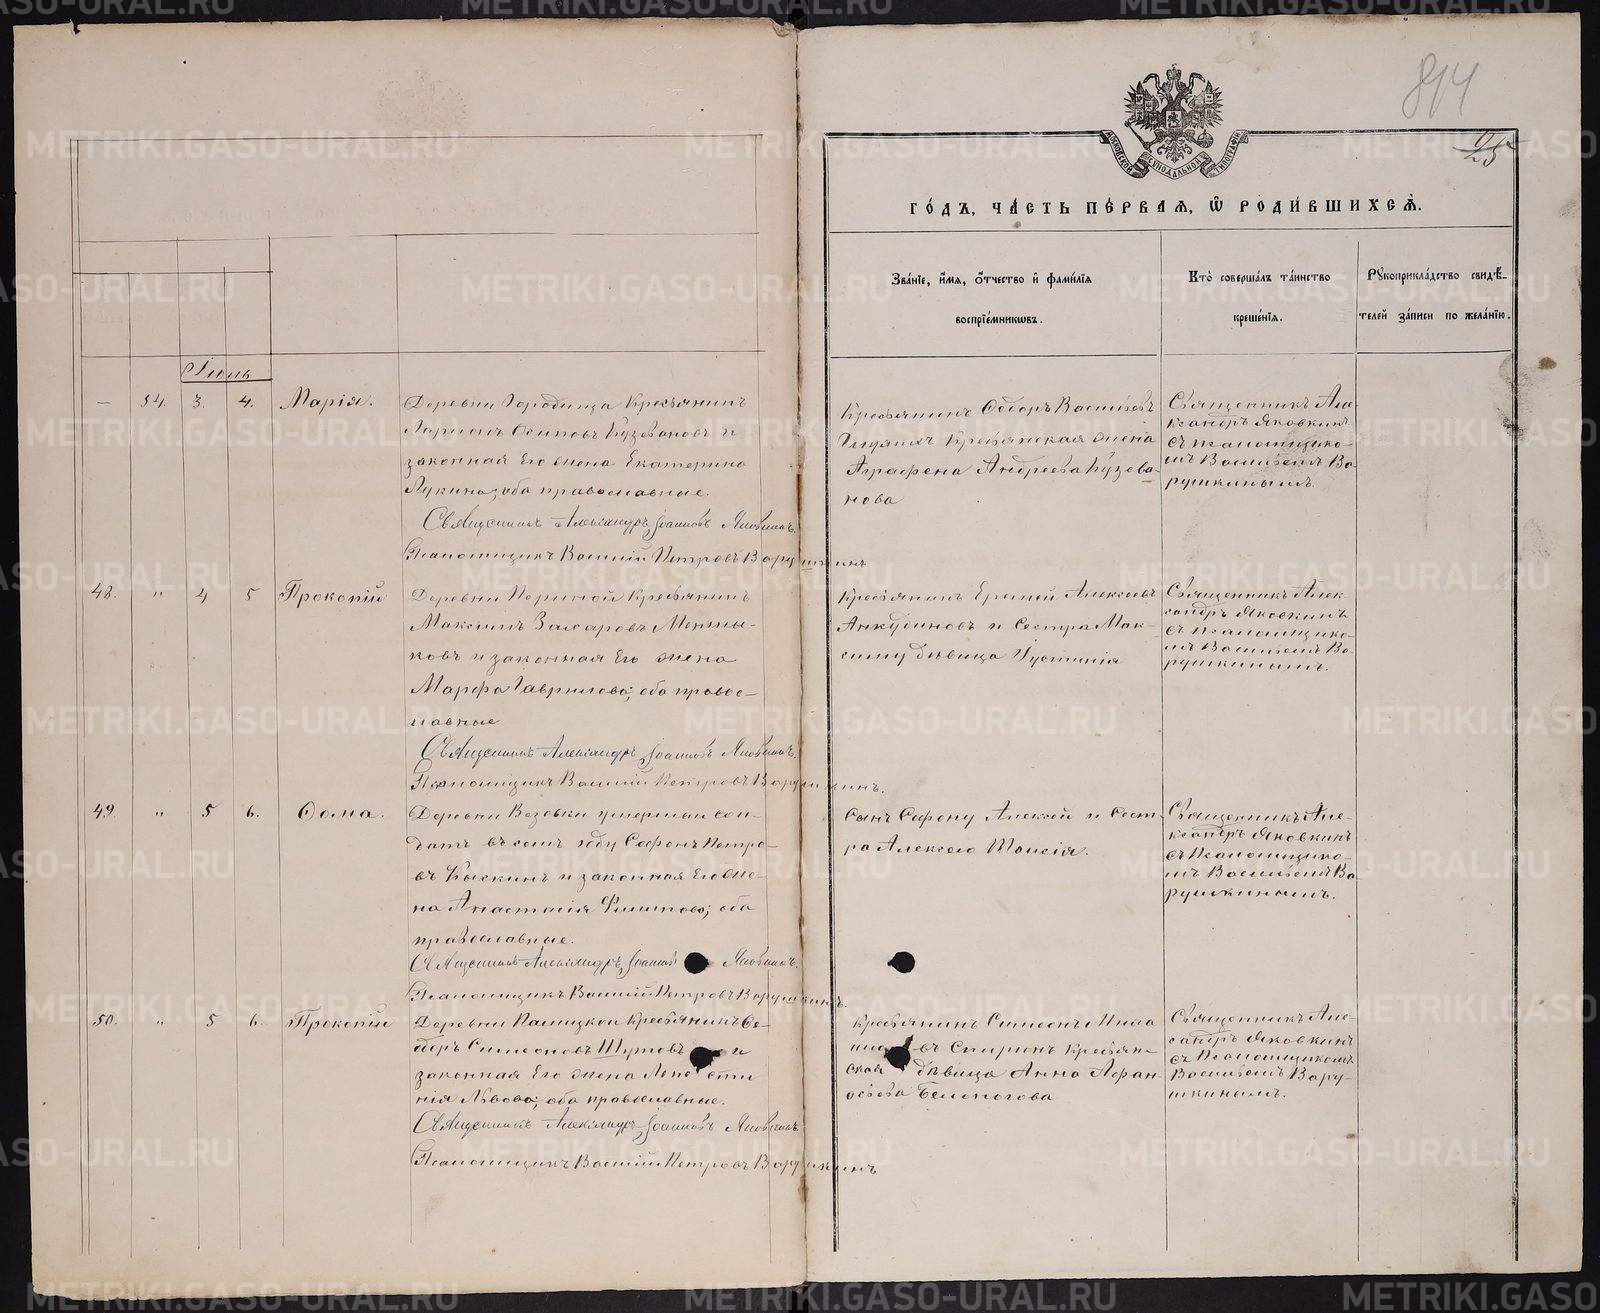 814
25
МОСКОВСКОЙ СѴНОДАЛЬНОЙ ТИПОГРАФІИ
ГО́ДЪ, ЧА́СТЬ ПЕ́РВАЯ, Ѡ҆ РОДИ́ВШИХСЯ.
Зва́нїе, и҆́мя, ѻ҆́тчество и҆ фами́лїя
воспрїе́мникѡвъ.
Кто̀ соверша́лъ та́инство
креще́нїя.
Рꙋкоприкла́дство свидѣ́-
телей за́писи по жела́нїю.
Іюнь
— 54. 3. 4. Марія.
Деревни Городища Крестьянинъ
Ларіонъ Осиповъ Кузевановъ и
законная Его жена Екатерина
Лукина; оба православные.
Священникъ Александръ Іоанновъ Яковкинъ.
Псаломщикъ Василій Петровъ Варушкинъ
Крестьянинъ Ѳедоръ Васильевъ
Крестьянская жена
Аграфена Андреева Кузева-
нова
Священникъ Але-
ксандръ Яковкинъ
съ псаломщико-
мъ Васильемъ Ва-
рушкинымъ.
48. " 4 5 Прокопій
Деревни Крестьянинъ
Максимъ Захаровъ Меньши-
ковъ и законная Его жена
Марфа Гаврилова; оба правос-
лавные
Священникъ Александръ Іоанновъ Яковкинъ.
Псаломщикъ Василій Петровъ Варушкинъ.
Крестьянинъ Еремей Алексеевъ
Анкудиновъ и Сестра Мак-
симу дѣвица Іустинія
Священникъ Алек-
сандръ Яковкинъ
съ псаломщико-
мъ Васильемъ Ва-
рушкинымъ.
49. " 5 6. Ѳома.
Деревни умершій сол-
датъ въ семъ году Софонъ Петро-
въ Кыскинъ и законная Его же-
на Анастасія Филипова; оба
православные.
Священникъ Александръ Іоанновъ Яковкинъ.
Псаломщикъ Василій Петровъ Варушкинъ.
Сынъ Софону Алексей и Сест-
ра Алексею Таисія.
Священникъ Але-
ксандръ Яковкинъ
съ Псаломщико-
мъ Васильемъ Ва
рушкинымъ.
50. " 5 6. Прокопій
Деревни Крестьянинъ Ѳе-
доръ Симеоновъ Шутовъ и
законная Его жена
Львова; оба православные.
Священникъ Александръ Іоанновъ Яковкинъ
Псаломщикъ Василій Петровъ Варушкинъ
Крестьянинъ Симеонъ
въ Спиринъ Крестьян-
ская дѣвица Анна Афан-
осьева Белоногова
Священникъ Але-
сандръ Яковкинъ
съ Псаломщикомъ
Васильемъ Вару-
шкинымъ.
METRIKI.GASO-URAL.RU